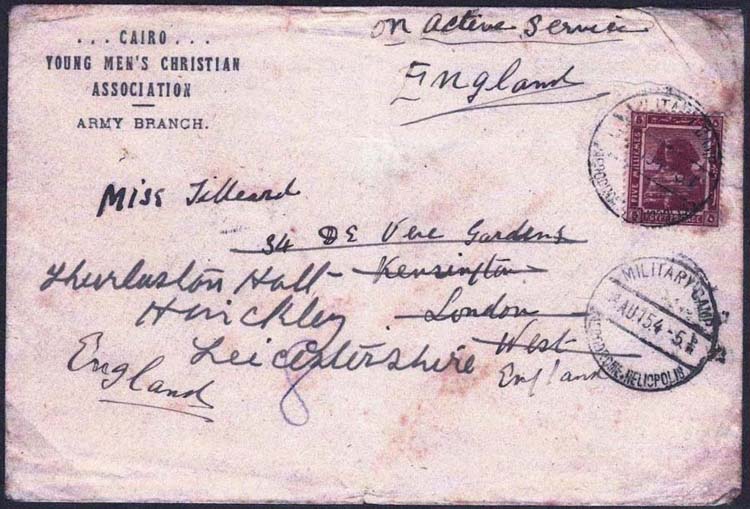 ... CAIRO ...
YOUNG MEN'S CHRISTIAN
ASSOCIATION
ARMY BRANCH.
on active service
England
FIVE MILLIEMES
Miss Tilleard
34 DE Vere Gardens
Kensington
London
West
England
Thurlaston Hall
Hinckley
Leicestershire
England
MILITARY CAMP
AU 15 4-5
HELIOPOLIS